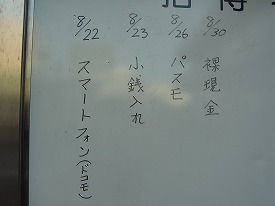 8/30 裸現金
8/26 パスモ
8/23 小銭入れ
8/22 スマートフォン(ドコモ)